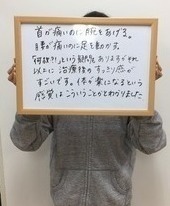 首が痛いのに腕をあげる。
腰が痛いのに足を動かす。
何故?!という疑問もありますがそれ
以上に治療後のすっきり感が
すごいです。体が楽になるという
感覚はこういうことかとわかりました